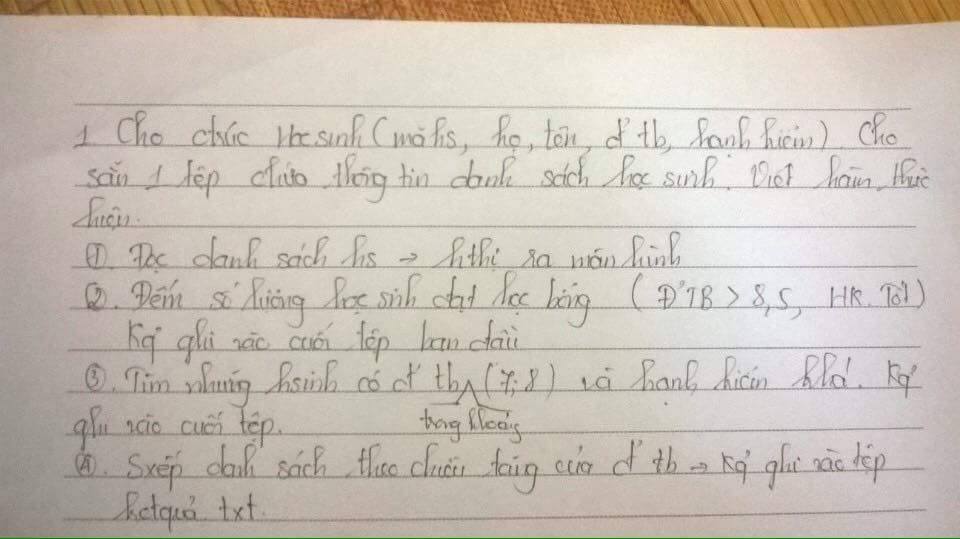 1 Cho cấu trúc Học sinh (mã hs, họ, tên, đ' tb, hạnh kiểm). Cho
sẵn 1 tệp chứa thông tin danh sách học sinh. Viết hàm thực
hiện.
①. Đọc danh sách hs → hthị ra màn hình
②. Đếm số lượng học sinh đạt học bổng (Đ'TB > 8,5, HK. Tốt)
Kq' ghi vào cuối tệp ban đầu
③. Tìm những hsinh có đ' tb trong khoảng (7; 8) và hạnh kiểm khá. Kq'
ghi vào cuối tệp.
④. Sxếp danh sách theo chiều tăng của đ' tb → Kq' ghi vào tệp
ketquả.txt.